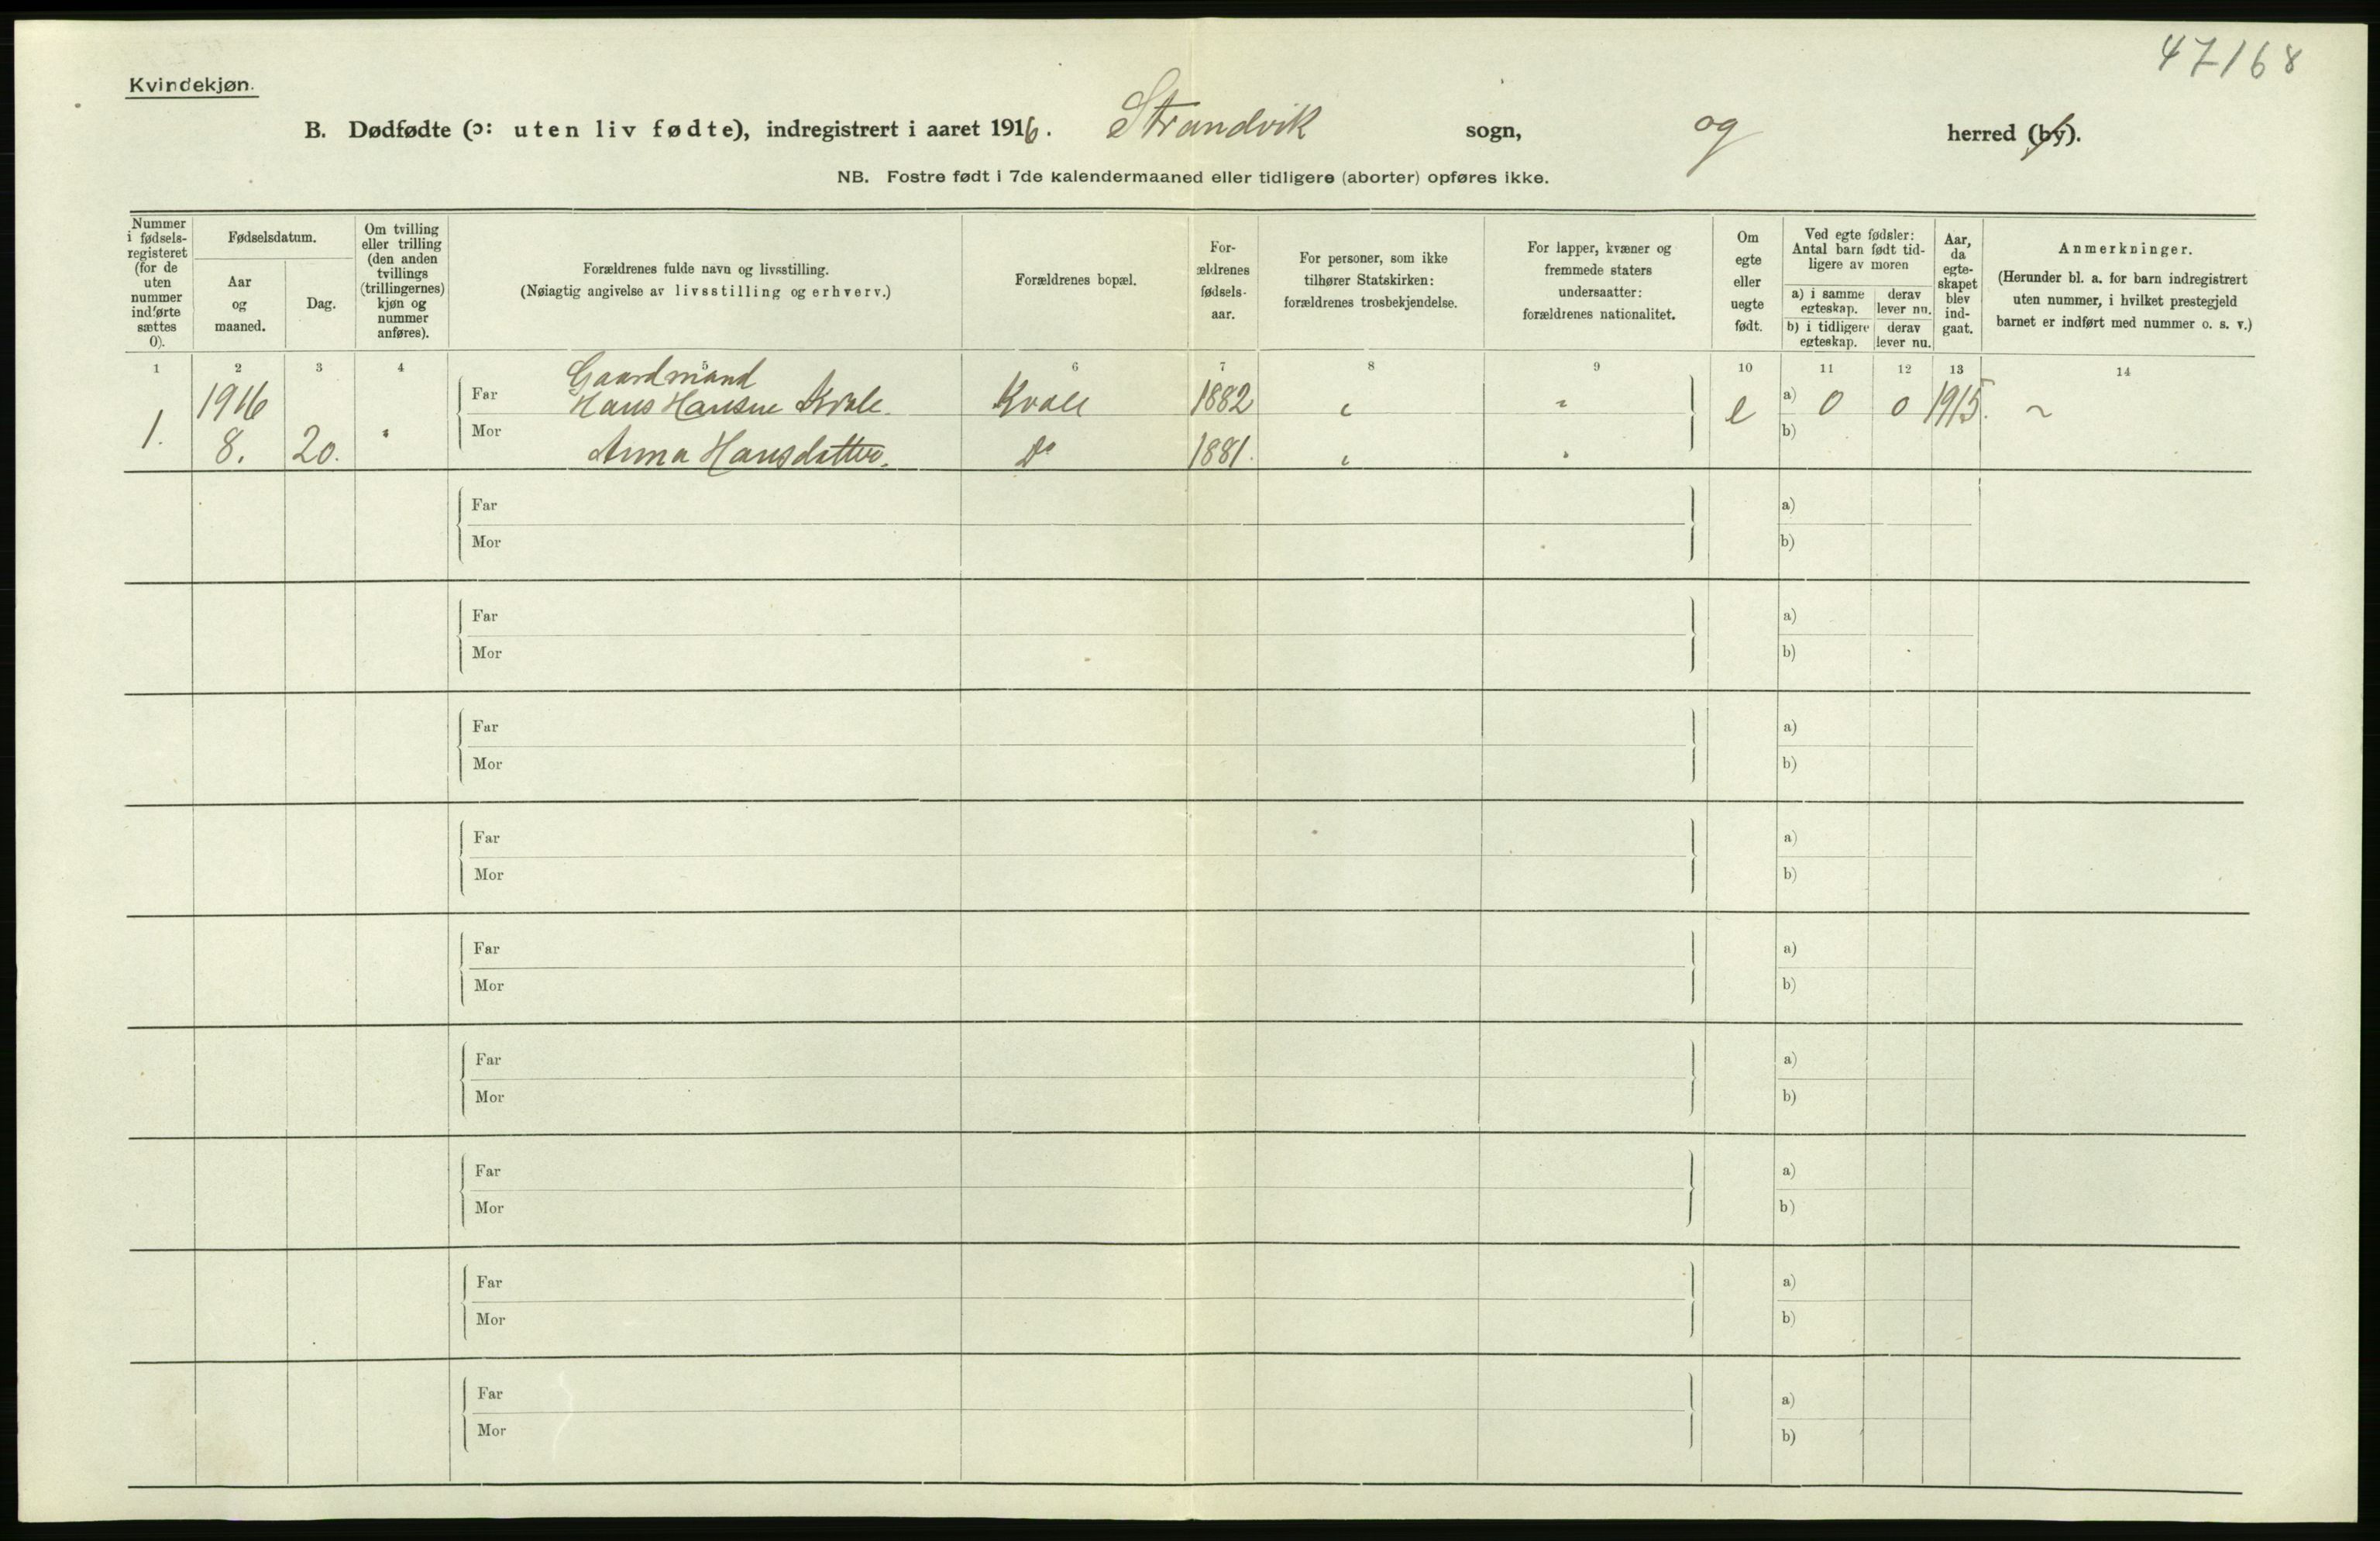 47168
Kvindekjøn.
B. Dødfødte (ɔ: uten liv fødte), indregistrert i aaret 1916. Strandvik sogn, og herred (by).
NB. Fostre født i 7de kalendermaaned eller tidligere (aborter) opføres ikke.
Nummer
i fødsels-
registeret
(for de
uten
nummer
indførte
sættes
0).
Fødselsdatum.
Aar
og
maaned.
Dag.
Om tvilling
eller trilling
(den anden
tvillings
(trillingernes)
kjøn og
nummer
anføres).
Forældrenes fulde navn og livsstilling.
(Nøiagtig angivelse av livsstilling og erhverv.)
Forældrenes bopæl.
For-
ældrenes
fødsels-
aar.
For personer, som ikke
tilhører Statskirken:
forældrenes trosbekjendelse.
For lapper, kvæner og
fremmede staters
undersaatter:
forældrenes nationalitet.
Om
egte
eller
uegte
født.
Ved egte fødsler:
Antal barn født tid-
ligere av moren
a) i samme
egteskap.
derav
lever nu.
b) i tidligere
egteskap.
derav
lever nu.
Aar,
da
egte-
skapet
blev
ind-
gaat.
Anmerkninger.
(Herunder bl. a. for barn indregistrert
uten nummer, i hvilket prestegjeld
barnet er indført med nummer o. s. v.)
1 2 3 4 5 6 7 8 9 10 11 12 13 14
Gaardmand
1916 Far Hans Hansen Kvale. Kvale 1882 " " e a) 0 0 1915. ~
1. Mor b)
8. 20. " Anna Hansdatter. Do 1881. " "
Far a)
Mor b)
Far a)
Mor b)
Far a)
Mor b)
Far a)
Mor b)
Far a)
Mor b)
Far a)
Mor b)
Far a)
Mor b)
Far a)
Mor b)
Far a)
Mor b)